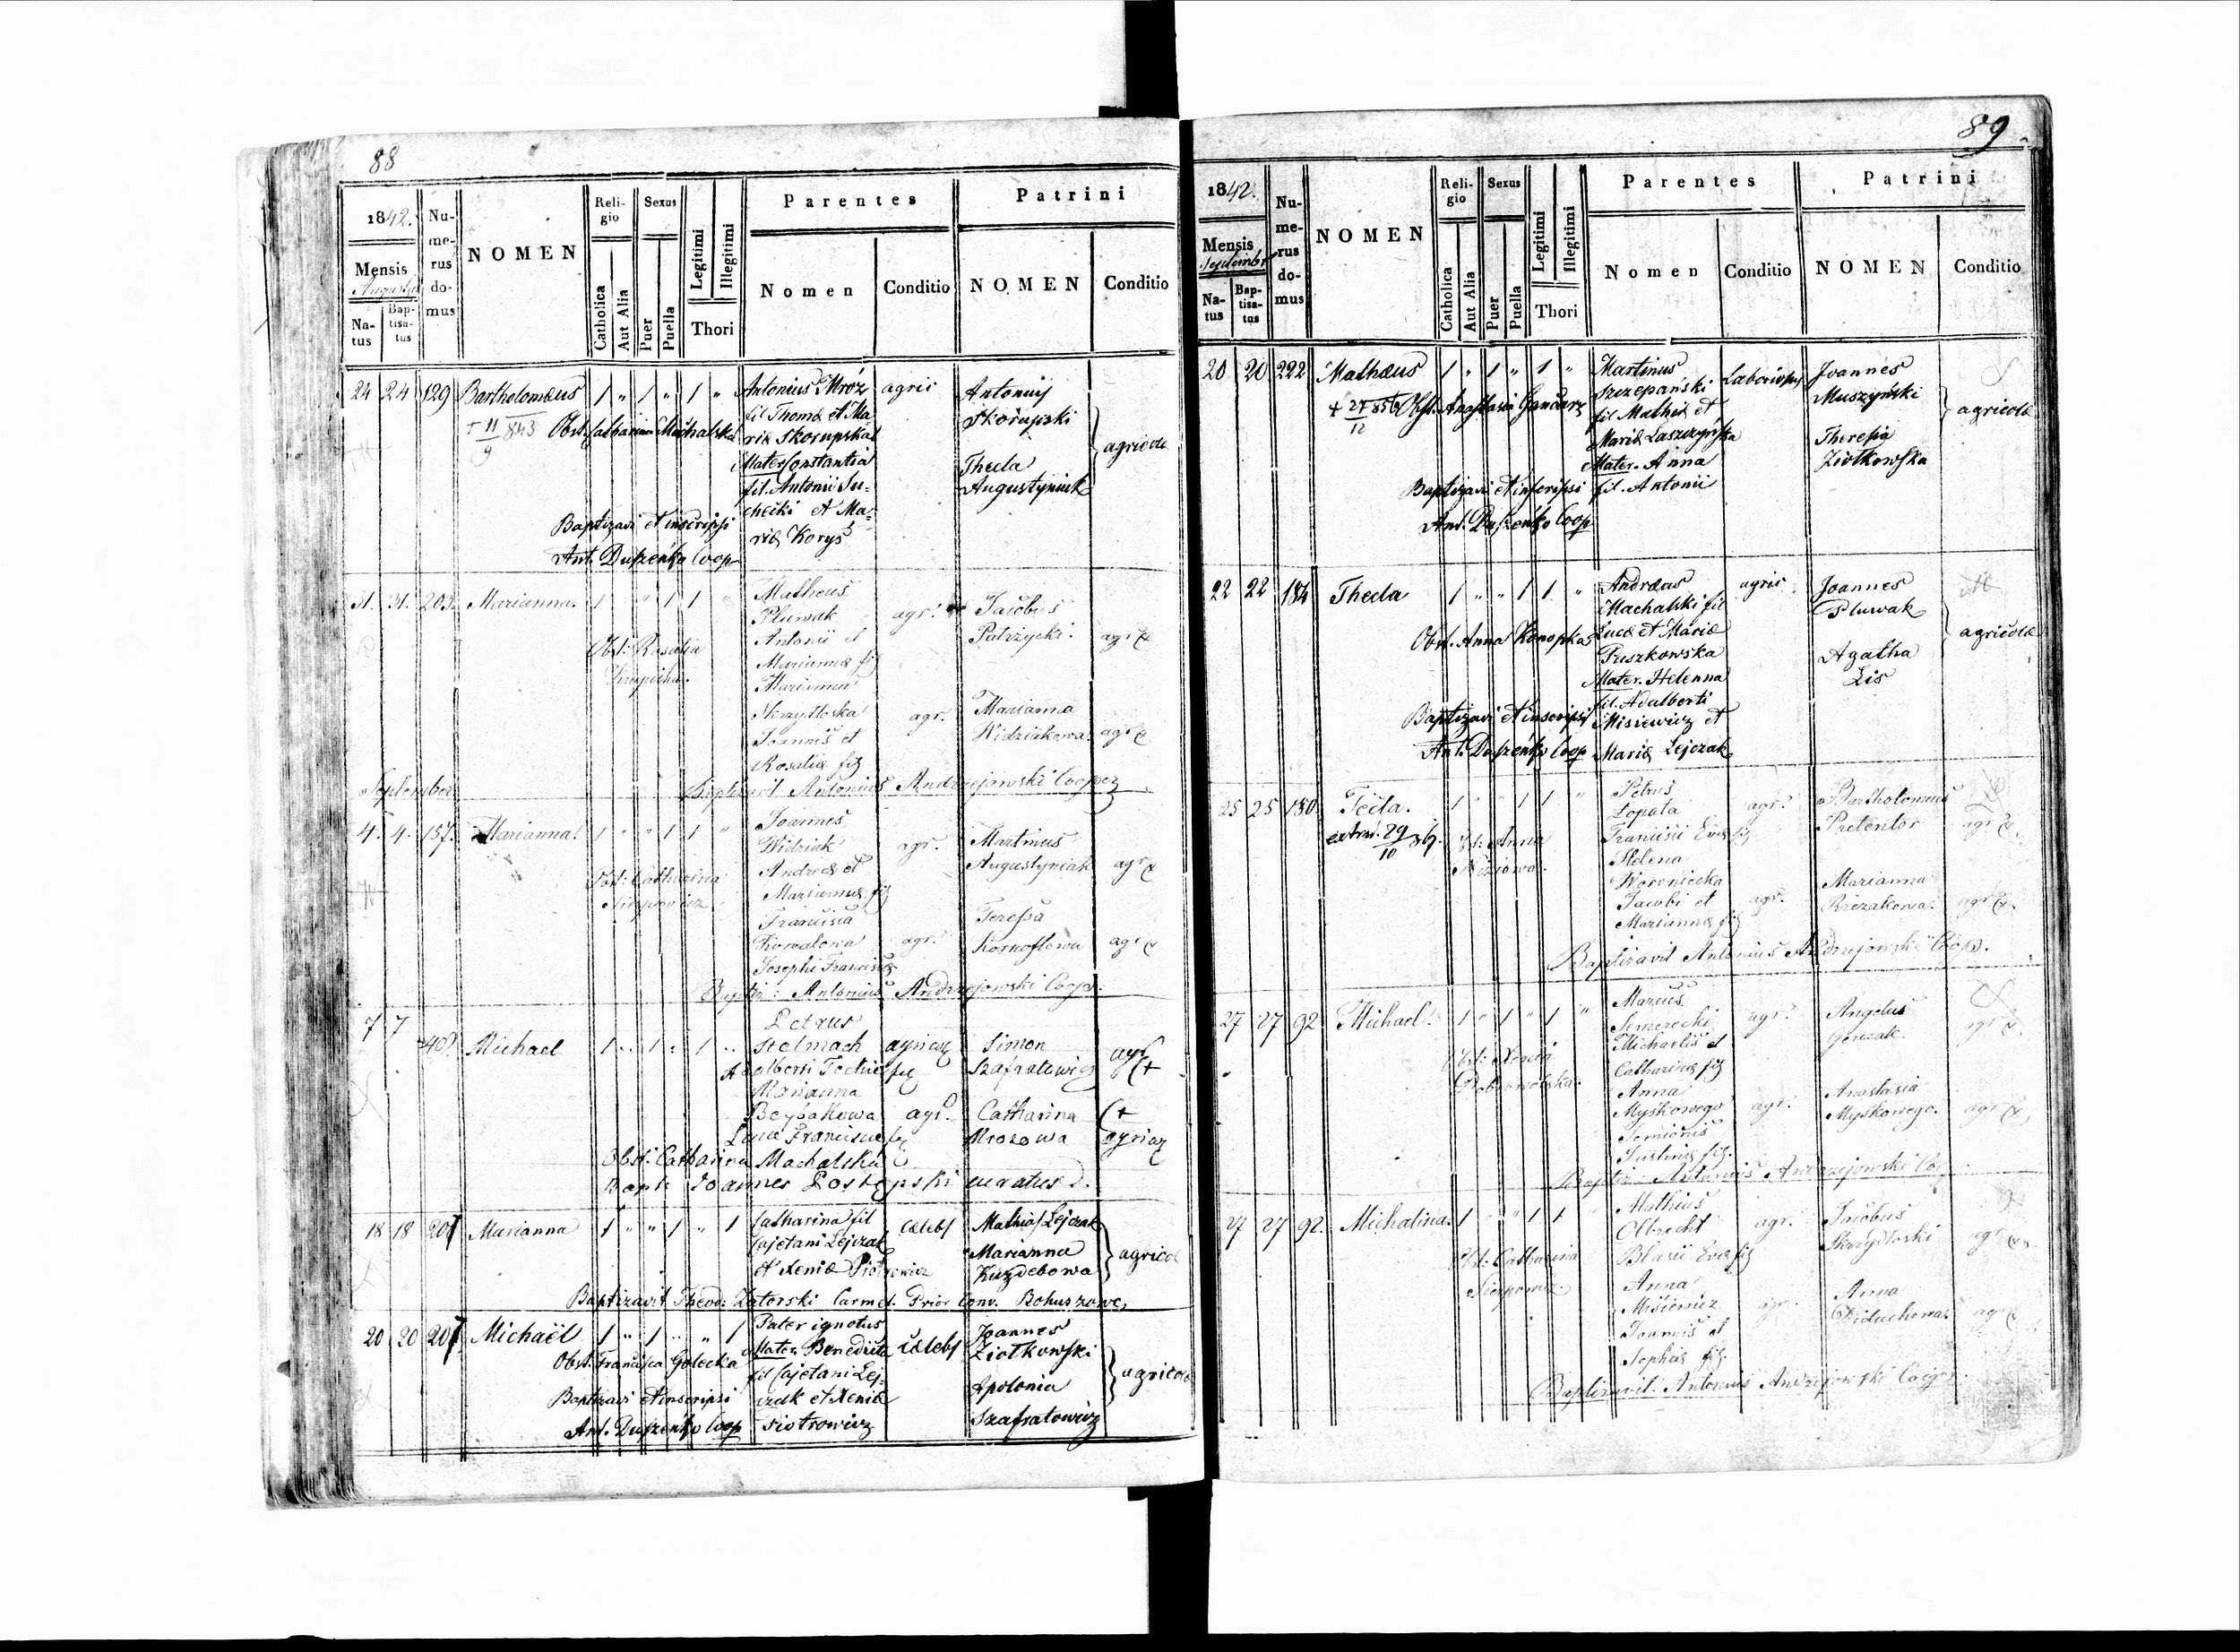 88
1842.
Mensis
Augustus
Na-
tus
Bap-
tisa-
tus
Nu-
me-
rus
do-
mus
NOMEN
Reli-
gio
Catholica
Aut Alia
Sexus
Puer
Puella
Legitimi
Illegitimi
Thori
Parentes
Nomen
Conditio
Patrini
NOMEN
Conditio
24 24 129 Bartholomæus 1 " 1 " 1 " Antonius Mróz agric Antonius
fil Thomæ et Ma Skorupski
+ 11/9 843 Obst. Catharina Machalska
riæ Skorupska agricolæ
Mater Constantia Thecla
fil. Antonii Su- Augustyniak
checki et Ma-
Baptizavi et inscripsi
riæ Koryś
Ant. Duszeńko Coop
31. 31. 203. Marianna. 1 " " 1 1 " Matheus
Pluwak agr. Jacobus
Antonii et Patrzycki. agr
Obst: Rosalia
Mariannæ fil
Marianna
Skrzydloska agr. Marianna
Joannis et Widziakowa. agr
Rosaliæ fil
September
Baptizavit Antonius Andrzejowski Cooper
4. 4. 157. Marianna. 1 " " 1 1 " Joannes
Widziak agr. Martinus
Andreæ et Augustyniak agr
Obst: Catharina
Mariannæ fil
Francisca Teressa
Kowalowa agr. agr
Josephi Franciscæ
Bapti: Antonius Andrzejowski Coop.
7 7 Petrus
40. Michael 1 " 1 " 1 " Stelmach Simon
Adalberti Teclæ fil Szafratowicz agr
Marianna
agr. Catharina
Lucæ Franciscæ fil Mrozowa
Obst: Catharina Machalska
Bapt. Joannes Postępski curatus
18 18 207 Marianna 1 " " 1 " 1 Catharina fil cælebs Mathias Lejczak
Cajetani Lejczak Marianna agricolæ
et Xeniæ Piotrowicz Kuzdebowa
Baptizavit Theod: Zatorski Carmel. Prior Conv. Bohuszowc.
20 20 207 Michaël 1 " 1 " " 1 Pater ignotus Joannes
Mater. Benedicta cælebs Ziołkowski
Obst. Francisca Golecka
fil Cajetani Lej- agricolæ
Baptizavi et inscripsi
czak et Xeniæ Apolonia
Ant. Duszeńko Coop
Piotrowicz Szafratowicz
89
1842.
Mensis
Septembr
Na-
tus
Bap-
tisa-
tus
Nu-
me-
rus
do-
mus
NOMEN
Reli-
gio
Catholica
Aut Alia
Sexus
Puer
Puella
Legitimi
Illegitimi
Thori
Parentes
Nomen
Conditio
Patrini
NOMEN
Conditio
20 20 222 Mathæus 1 " 1 " 1 " Martinus Joannes
Szczepański Laboriosus Muszyński
+ 27/12 856 Obst. Anastasia Gancarz
fil Mathiæ et agricolæ
Mariæ Laszczyńska Theresia
Mater. Anna Ziołkowska
Baptizavi et inscripsi fil. Antonii
Ant. Duszeńko Coop
22 22 184 Thecla 1 " " 1 1 " Andræas agric. Joannes
Machalski fil Pluwak
Obst. Anna Konopka
Lucæ et Mariæ agricolæ
Puszkowska Agatha
Mater. Helenna Lis
fil. Adalberti
Baptizavi et inscripsi
Misiewicz et
Ant. Duszeńko Coop
Mariæ Lejczak
25 25 180 Tecla. 1 " " 1 1 " Petrus
Lopata agr. Bartholomeus
29/10
Obst: Anna
Francisci Evæ fil Pretentor agr
Helena
Woroniecka Marianna
Jacobi et agr. agr
Mariannæ fil
Baptizavit Antonius Andrzejowski Coop.
27 27 92. Michael. 1 " 1 " 1 " Marcus
Semerecki agr. Angelus
Michaelis et agr
Catharinæ fil
Anna Anastasia
Myskowego agr. Myskowego. agr
Semionis
Justinæ fil.
Bapti: Antonius Andrzejowski Coop
27 27 92. Michalina. 1 " " 1 1 " Mathias
Olbrecht agr. Jacobus
Obst: Catharina
Blasii Evæ fil Skrzydloski agr
Anna Anna
Misiewicz agr. agr
Joannis et
Sophiæ fil.
Baptizavit: Antonius Andrzejowski Cooper.